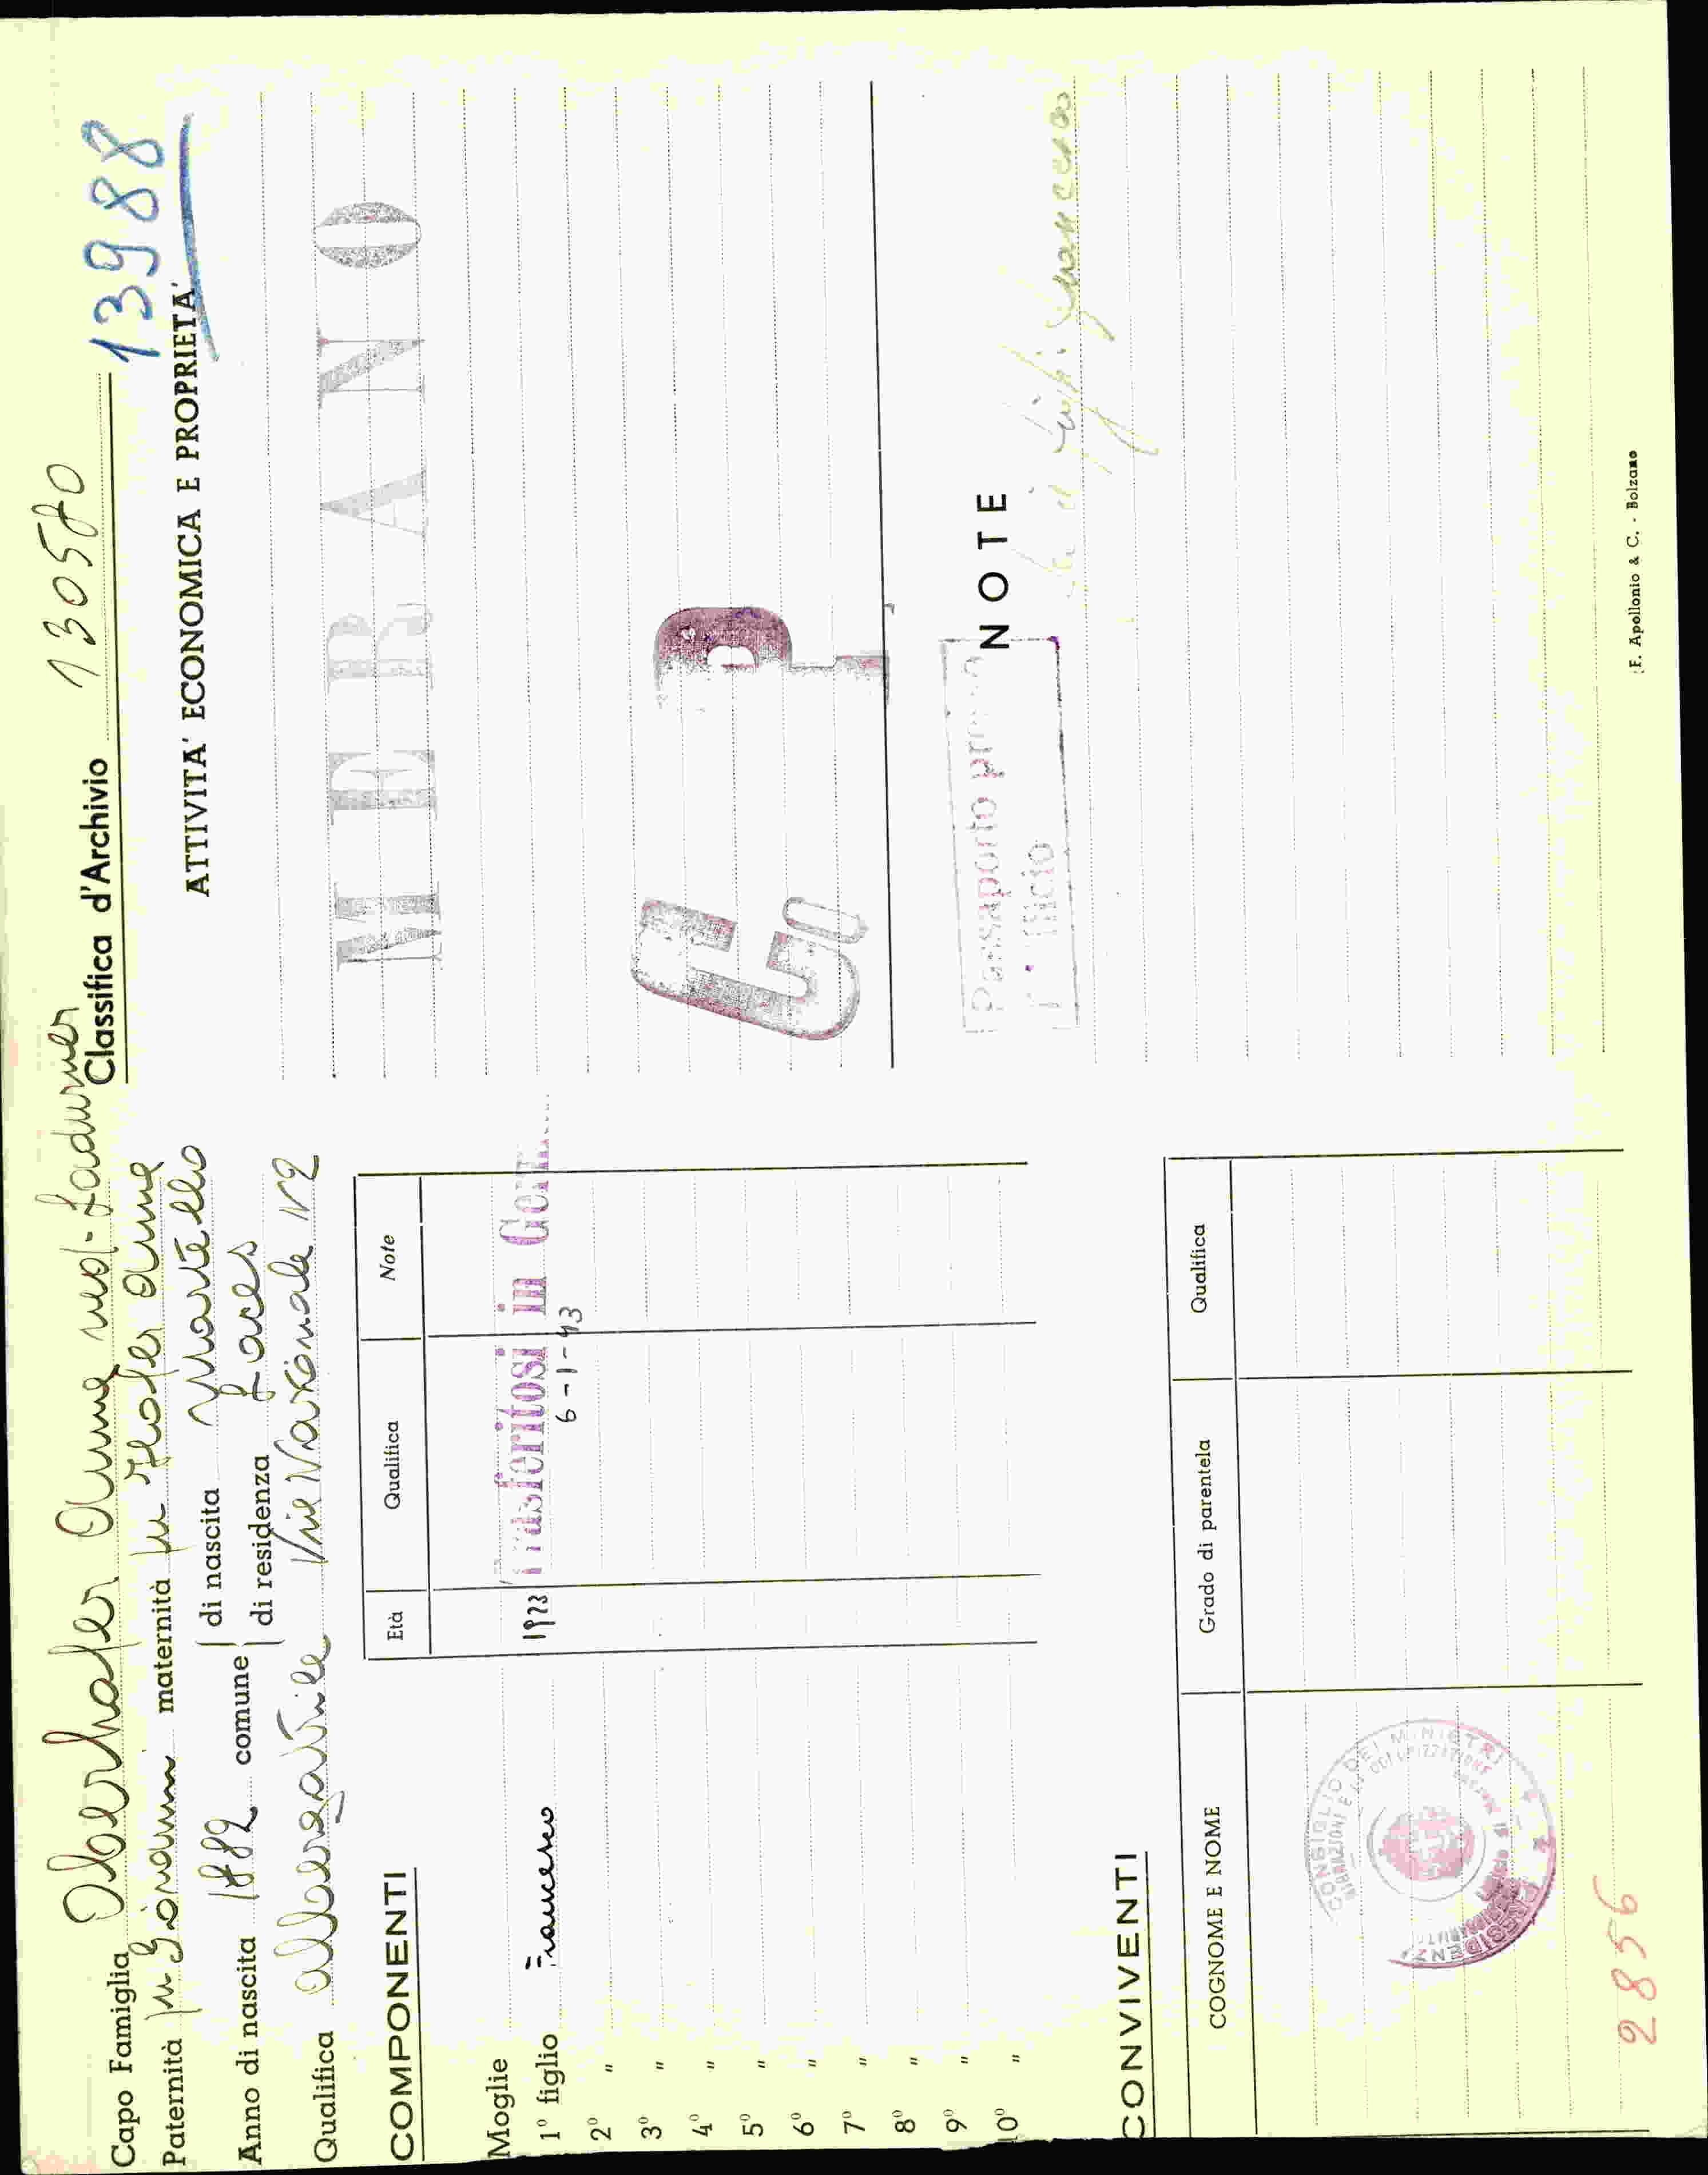 Capo Famiglia Oberhofer Anna ved. Ladurner
Classifica d'Archivio 130580
13988
Paternità fu Giovanni maternità fu Hofer Anna
Anno di nascita 1882 comune di nascita Martello
di residenza Laces
Qualifica Via Nazionale N2
COMPONENTI
Età Qualifica Note
Moglie
1° figlio Francesco 1923 Trasferitosi in
6-1-43
2° "
3° "
4° "
5° "
6° "
7° "
8° "
9° "
10° "
CONVIVENTI
COGNOME E NOME Grado di parentela Qualifica
CONSIGLIO DEI MINISTRI
2856
ATTIVITA' ECONOMICA E PROPRIETA'
MERANO
G
P
Passaporto
NOTE
Francesco
F. Apollonio & C. - Bolzano